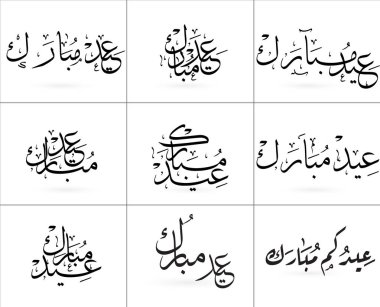 عيد مبارك
عيد مبارك
عيد مبارك
عيد مبارك
عيد مبارك
عيد مبارك
عيدكم مبارك
عيد مبارك
عيد مبارك